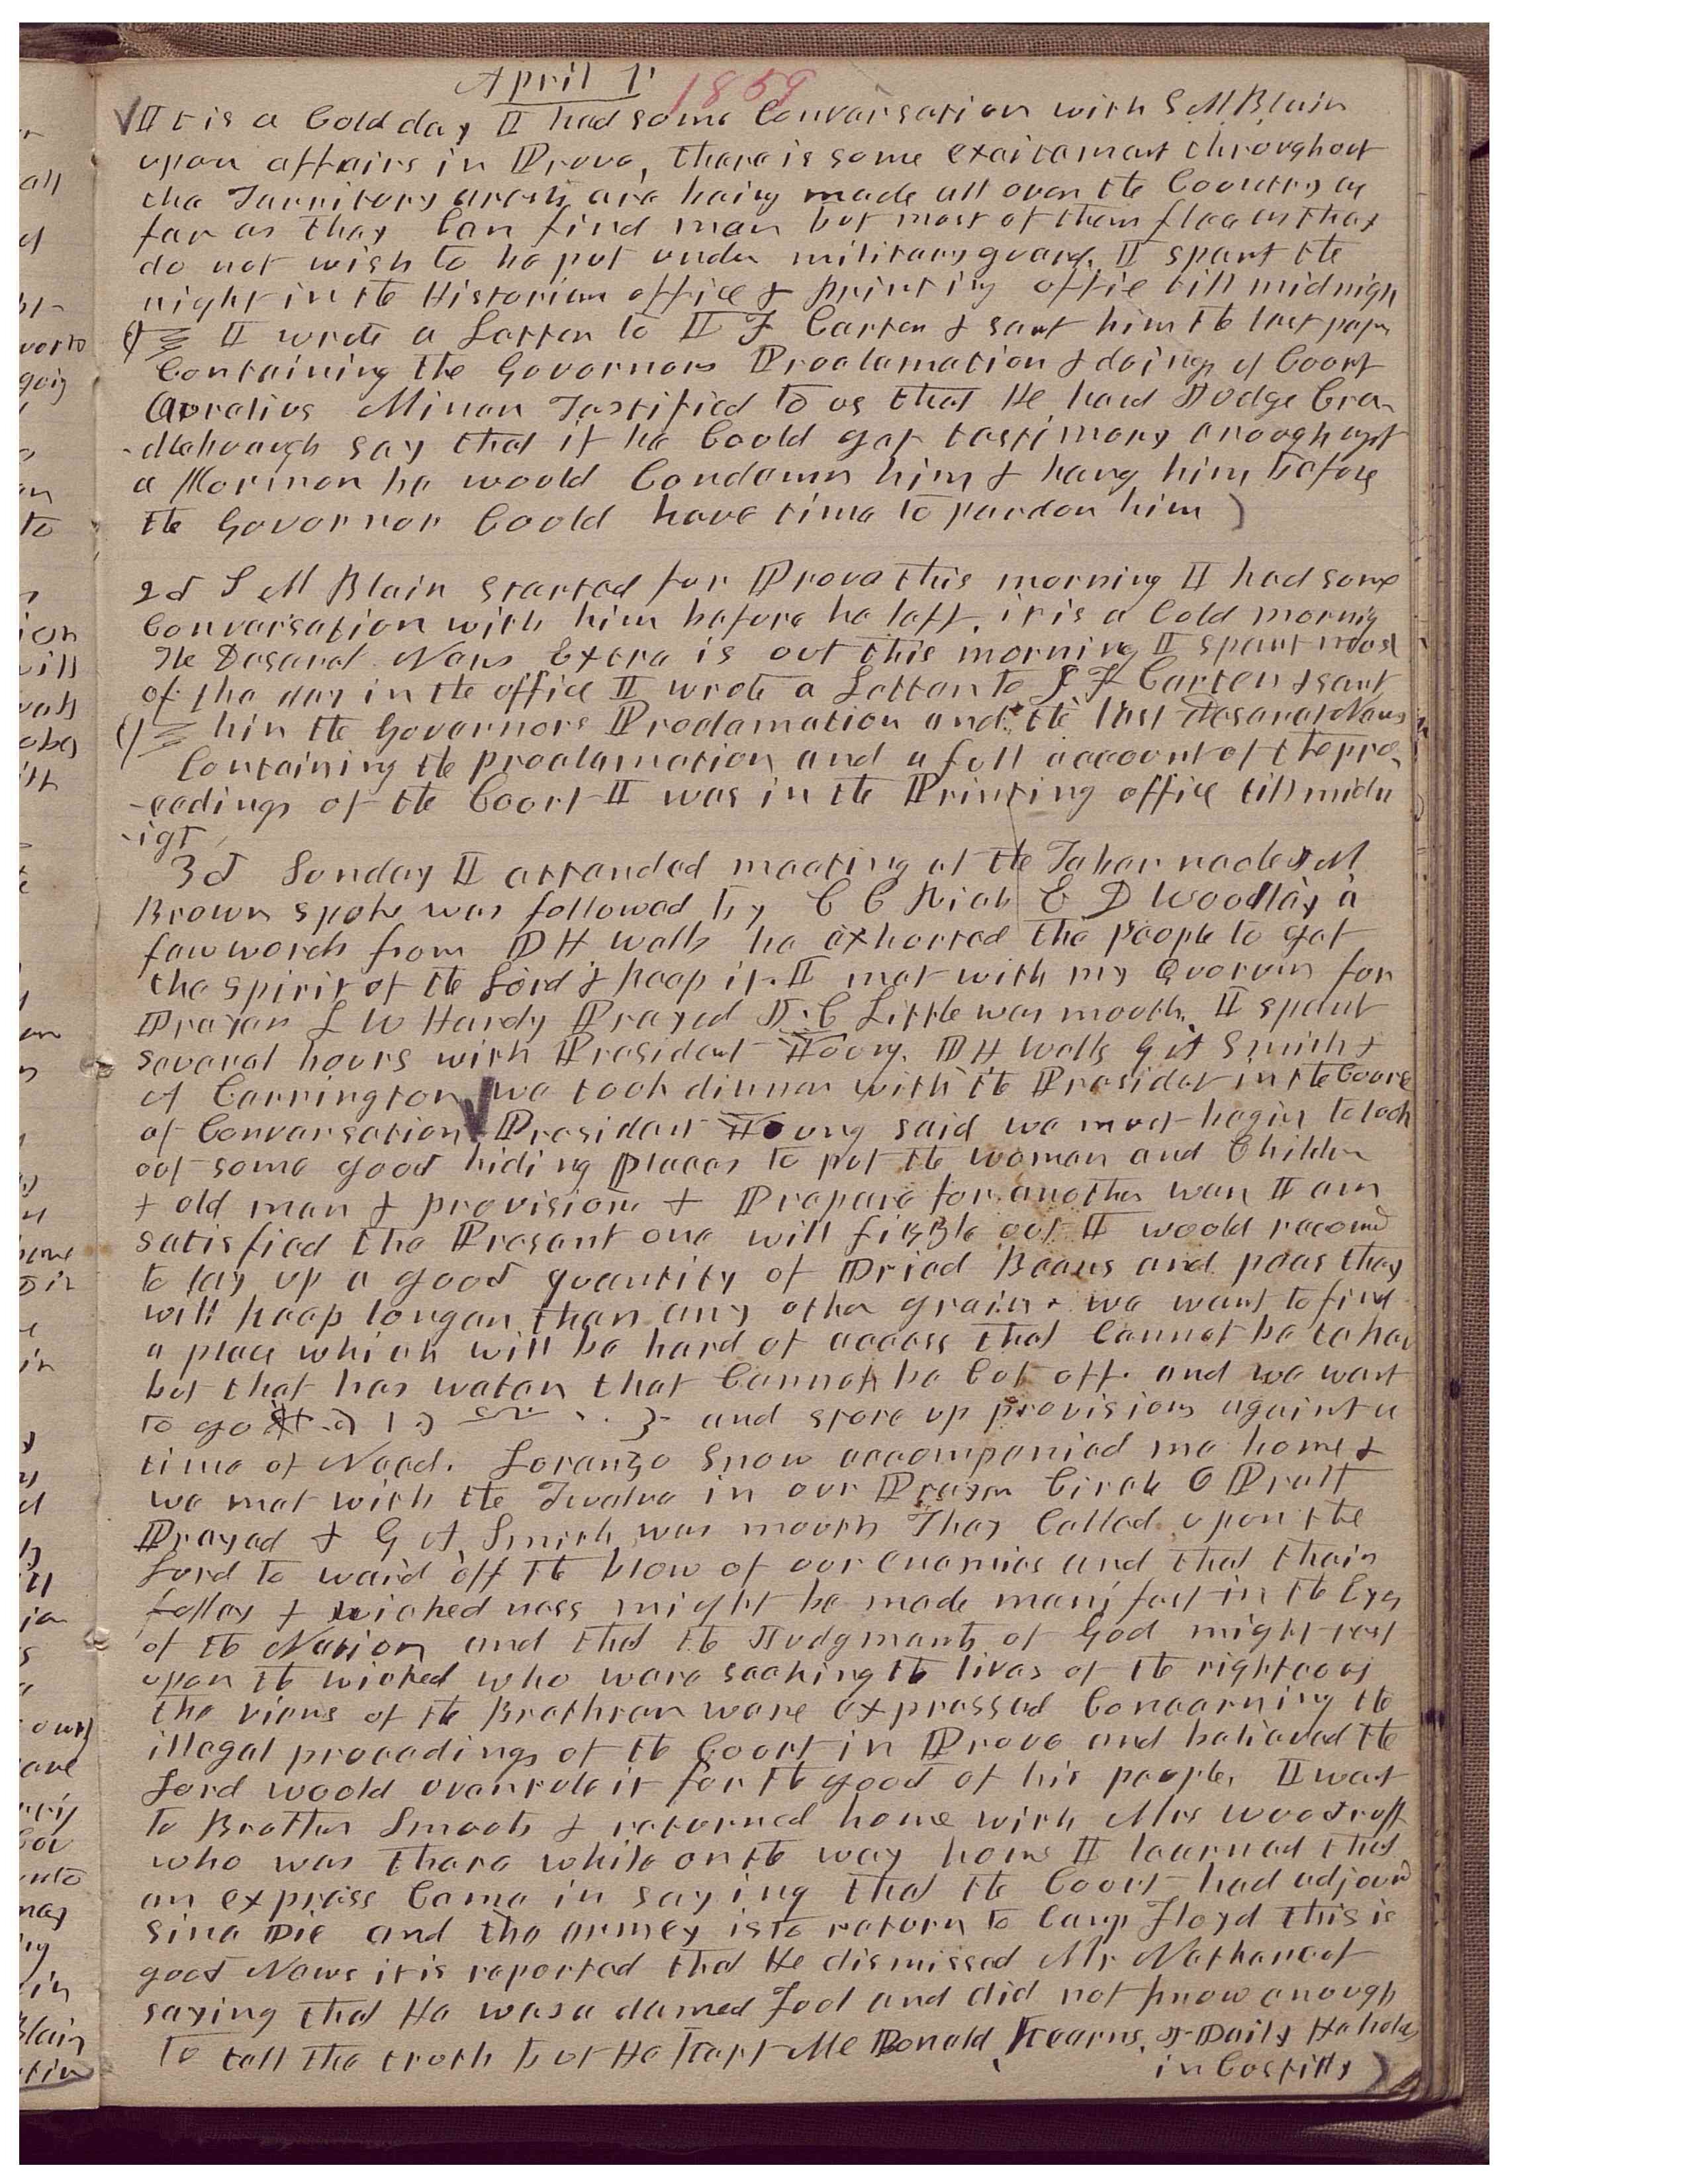 April 1' 1859
It is a Cold day I had some Convarsation with S M Blain
upon affairs in Provo, there is some excitement throughout
the Territory arests are being made all over the Country as
far as they Can find men but most of them flee as they
do not wish to be put under military guard. I spent the
night in the Historian office & printing offie till midnigh
I wrote a Letter to I F Carter & sent him the last paper
Containing the Governors Proclamation & doings of Court
Aurelius Minor Testified to us that He heard Judge Cra-
-dlebaugh say that if he Could get testimony enough agst
a Mormon he would Condemn him & hang him before
the Governor Could have time to pardon him )
2d S M Blain started for Provo this morning I had some
Conversation with him before he left. it is a Cold mornig
The Deseret News Extra is out this morning I spent most
of the day in the office I wrote a Letter to I F Carter & sent
him the Governors Proclamation and the last Deseret News
Containing the proclamation and a full account of the pro-
-ceedings of the Court I was in the Printing office till midn
-igt
3d Sunday I attended meeting at the Tabernacle M
Brown spoke was followed by C C Rich E D Woolley a
few words from D H Wells he exhorted the people to get
the spirit of the Lord & keep it. I met with my Quorum for
Prayer L W Hardy Prayed J. C Little was mouth. I spent
several hours with President Young. D H Wells G A Smith &
A Carrington we took dinner with the President in the Cours
of Conversation President Young said we must begin to look
out some good hiding places to put the women and Children
& old men & provisions & Prepare for another war I am
satisfied the Present one will fizzle out I would recomd
to lay up a good quantity of Dried Beans and peas they
will keep longer than any other grain & we want to find
a place which will be hard of access that Cannot be taken
but that has water that Cannot be Cut off. and we want
to go and store up provisions against a
time of Need. Loranzo Snow accompanied me home &
we met with the Twelve in our Prayer Circle O Pratt
Prayed & G A Smith was mouth They Called upon the
Lord to ward off the blow of our enemies and that their
folley & wickedness might be made manifest in the Eyes
of the Nation and that the Judgments of God might rest
upon the wicked who were seeking the lives of the righteous
the views of the Brethren were expressed Concerning the
illegal procedings of the Court in Provo and believed the
Lord would overrule it for the good of his people. I went
to Brother Smoots & returned home with Mrs Woodruff
who was there while on the way home I learned that
an express Came in saying that the Court had adjourd
sine Die and the armey is to return to Camp Floyd this is
good News it is reported that He dismissed Mr Nathane of
saying that He was a damed Fool and did not know enough
to tell the truth but He kept Mc Donald, Kearns, & Daily He holds
in Custitty )